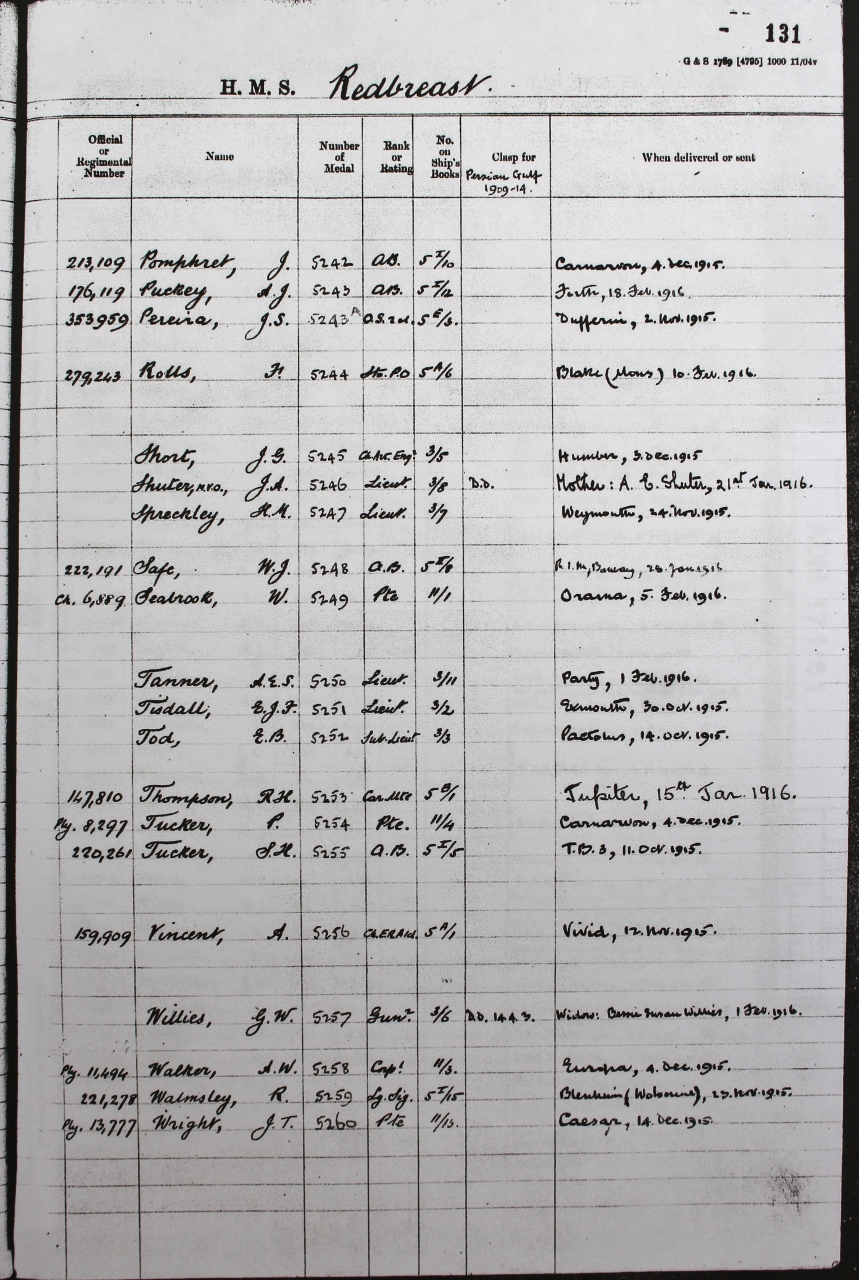 131
G & S 1759 [4795] 1000 11/04v
H. M. S. Redbreast.
Official or Regimental Number Name Number of Medal Rank or Rating No. on Ship's Books Clasp for Persian Gulf 1909-14. When delivered or sent
213,109 Pomphret, J. 5242 A.B. 5 I/10 Carnarvon, 4. Dec. 1915.
176,119 Puckey, A.J. 5243 A.B. 5 I/12 Forth, 18. Feb. 1916.
353959 Pereira, J.S. 5243A O.S. 2 cl. 5 E/3. Dufferin, 2. Nov. 1915.
279,243 Rolls, F. 5244 Sto. P.O 5 A/6 Blake (Mons) 10. Feb. 1916.
Short, J.G. 5245 Ch. Art. Engr 3/5 Humber, 3. Dec. 1915
Shuter, M.V.O., J.A. 5246 Lieut. 3/8 D.D. Mother: A. E. Shuter, 21st Jan. 1916.
Spreckley, H.M. 5247 Lieut. 3/7 Weymouth, 24. Nov. 1915.
222,191 Safe, W.J. 5248 A.B. 5 I/6 R.I.M, Bombay, 28. Jan. 1916
Ch. 6,889 Seabrook, W. 5249 Pte 11/1 Orama, 5. Feb. 1916.
Tanner, A.E.S. 5250 Lieut. 3/11 Party, 1 Feb. 1916.
Tisdall, E.J.F. 5251 Lieut. 3/2 Exmouth, 30. Oct. 1915.
Tod, E.B. 5252 Sub. Lieut 3/3 Pactolus, 14. Oct. 1915.
147,810 Thompson, R.H. 5253 Car. Mte 5 B/1 Jupiter, 15th Jan. 1916.
Ply. 8,297 Tucker, P. 5254 Pte. 11/4 Carnarvon, 4. Dec. 1915.
220,261 Tucker, S.H. 5255 A.B. 5 I/5 T.B. 3, 11. Oct. 1915.
159,909 Vincent, A. 5256 Ch. E.R.A. 5 A/1 Vivid, 12. Nov. 1915.
Willies, G.W. 5257 Gunr. 3/6 D.D. 14.4.3. Widow: Bessie Susan Willies, 1 Feb. 1916.
Ply. 11,494 Walker, A.W. 5258 Cpl. 11/3. Europa, 4. Dec. 1915.
221,278 Walmsley, R. 5259 Lg. Sig. 5 I/15 Blenheim (Wolverine), 23. Nov. 1915.
Ply. 13,777 Wright, J.T. 5260 Pte 11/13. Caesar, 14. Dec. 1915.